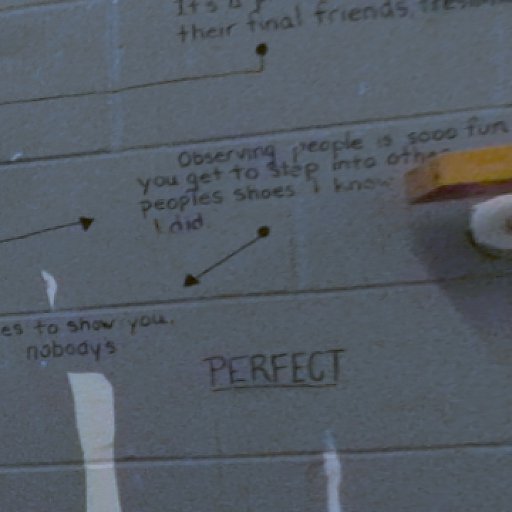 It's a
their final friends,
Observing people is sooo fun
you get to step into other
peoples shoes I know
I did.
es to show you.
nobodys
PERFECT